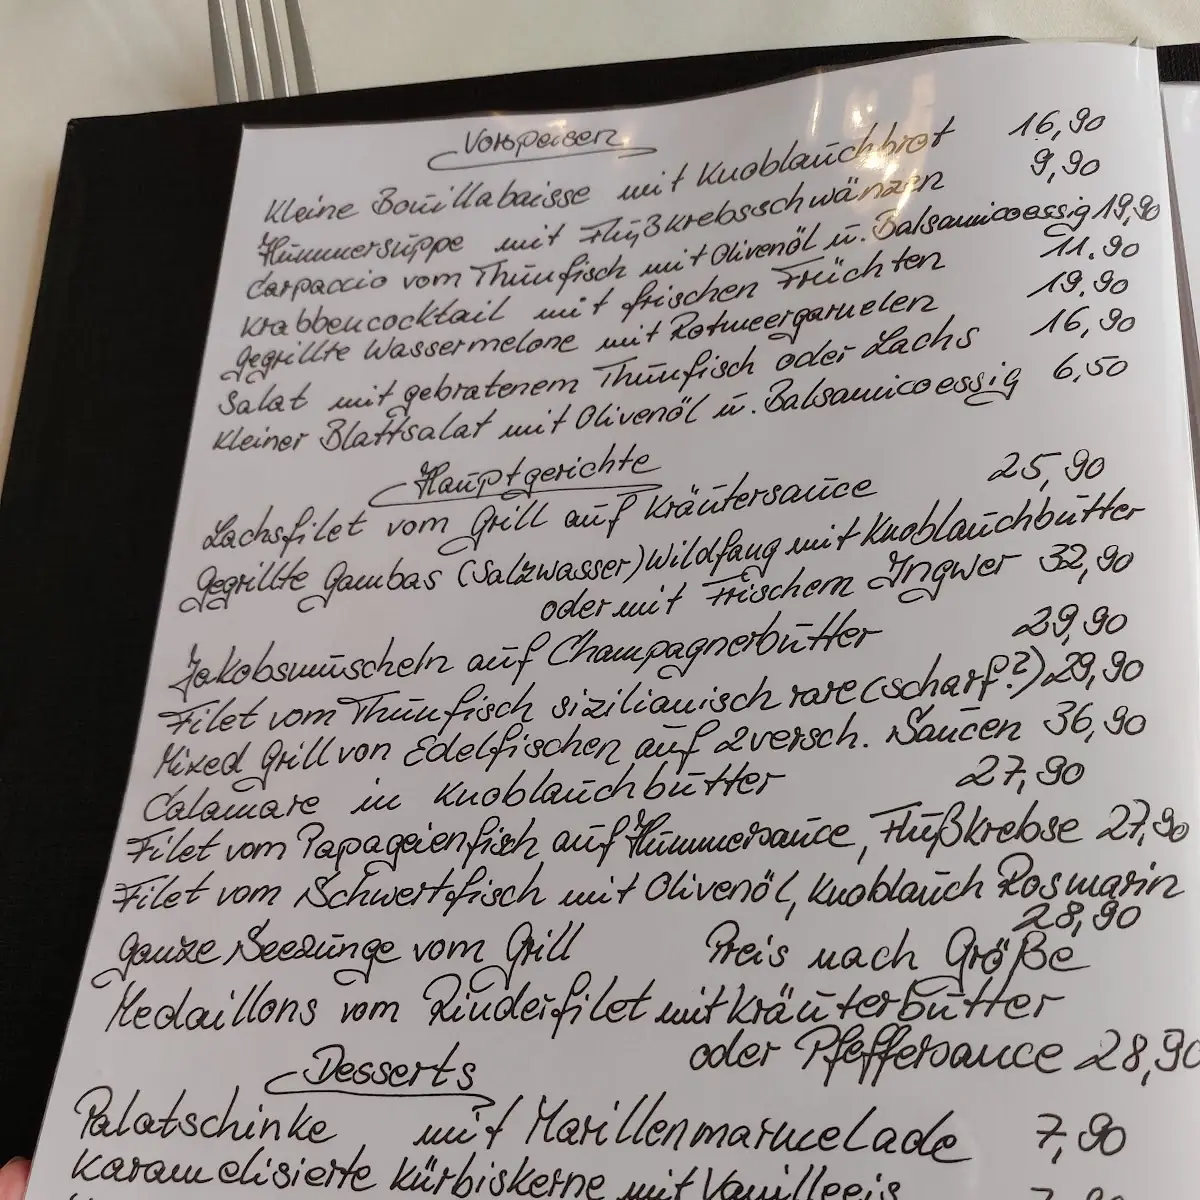 Vorspeisen
Kleine Bouillabaisse mit Knoblauchbrot 16,90
Hummersuppe mit Flußkrebsschwänzen 9,90
Carpaccio vom Thunfisch mit Olivenöl u. Balsamicoessig 19,90
Krabbencocktail mit frischen Früchten 11.90
gegrillte Wassermelone mit Rotmeergarnelen 19.90
Salat mit gebratenem Thunfisch oder Lachs 16,90
Kleiner Blattsalat mit Olivenöl u. Balsamicoessig 6,50
Hauptgerichte
Lachsfilet vom Grill auf Kräutersauce 25,90
gegrillte Gambas (Salzwasser) Wildfang mit Knoblauchbutter
oder mit Frischem Ingwer 32,90
Jakobsmuscheln auf Champagnerbutter 29,90
Filet vom Thunfisch sizilianisch rare (scharf?) 29,90
Mixed Grill von Edelfischen auf 2 versch. Saucen 36,90
Calamare in Knoblauchbutter 27,90
Filet vom Papageienfisch auf Hummersauce, Flußkrebse 27,90
Filet vom Schwertfisch mit Olivenöl, Knoblauch Rosmarin
28,90
ganze Seezunge vom Grill Preis nach Größe
Medaillons vom Rinderfilet mit Kräuterbutter
oder Pfeffersauce 28,90
Desserts
Palatschinke mit Marillenmarmelade 7,90
Karamelisierte Kürbiskerne mit Vanilleeis